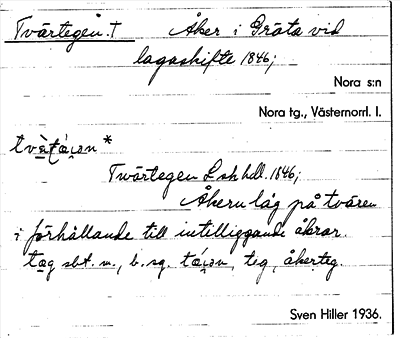 Tvärtegen.† Åker i Gräta vid
lagaskifte 1846;
Nora s:n
Nora tg., Västernorrl. l.
Twärtegen Lskhdl. 1846;
Åkern låg på tvären
i förhållande till intelliggande åkrar.
tæg sbt. m., b. sg. teg, åkerteg.
Sven Hiller 1936.